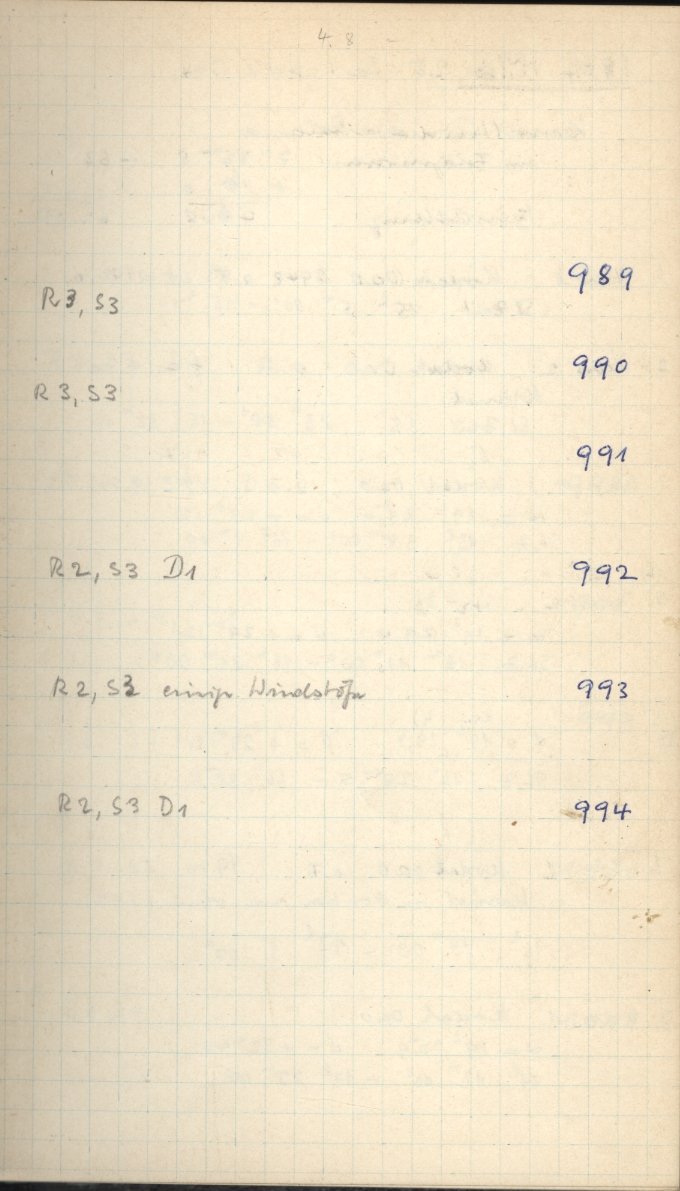 4. 8
989
R3, S3
990
R 3, S3
991
R2, S3 D1
992
R2, S3 einige Windstöße
993
R2, S3 D1
994